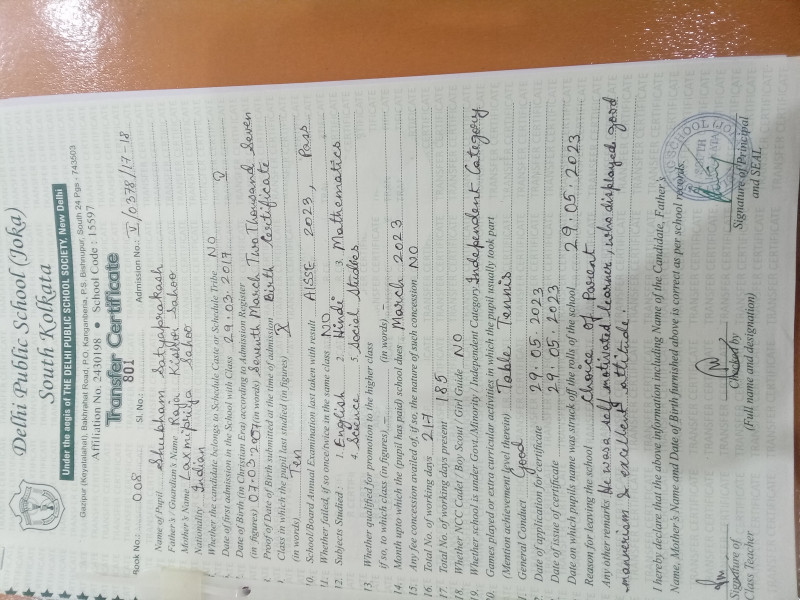 Delhi Public School (Joka)
South Kolkata
Under the aegis of THE DELHI PUBLIC SCHOOL SOCIETY, New Delhi
Gazipur (Keyatadahari), Bakhrahat Road, P.O. Kanganberia, P.S. Bishnupur, South 24 Pgs - 743503
Affiliation No. 2430198 • School Code : 15597
Transfer Certificate
Book No.: 008 Sl. No.: 801 Admission No.: V/0378/17-18
Name of Pupil Shubham Satyaprakash
Father's / Guardian's Name Raja Kishor Sahoo
Mother's Name Laxmipriya Sahoo
Nationality Indian
Whether the candidate belongs to Schedule Caste or Schedule Tribe NO
Date of first admission in the School with Class 29.03.2017 V
Date of Birth (in Christian Era) according to Admission Register
(in figures) 07.03.2007 (in words) Seventh March Two Thousand Seven
Proof of Date of Birth submitted at the time of admission Birth Certificate
Class in which the pupil last studied (in figures) X
(in words) Ten
10. School/Board Annual Examination last taken with result AISSE 2023, Pass
11. Whether failed, if so once/twice in the same class NO
12. Subjects Studied : 1. English 2. Hindi 3. Mathematics
4. Science 5. Social Studies
13. Whether qualified for promotion to the higher class
if so, to which class (in figures) – (in words) –
14. Month upto which the (pupil has paid) school dues March 2023
15. Any fee concession availed of, if so, the nature of such concession NO
16. Total No. of working days 217
17. Total No. of working days present 185
18. Whether NCC Cadet / Boy Scout / Girl Guide NO
19. Whether school is under Govt./Minority / Independent Category Independent Category
20. Games played or extra curricular activities in which the pupil usually took part
(Mention achievement level therein) Table Tennis
General Conduct Good
Date of application for certificate 29.05.2023
Date of issue of certificate 29.05.2023
Date on which pupils name was struck off the rolls of the school 29.05.2023
Reason for leaving the school Choice of Parent
Any other remarks He was a self motivated learner, who displayed good
mannerism & excellent attitude.
I hereby declare that the above information including Name of the Candidate, Father's
Name, Mother's Name and Date of Birth furnished above is correct as per school records.
Signature of
Class Teacher
Checked by
(Full name and designation)
Signature of Principal
and SEAL